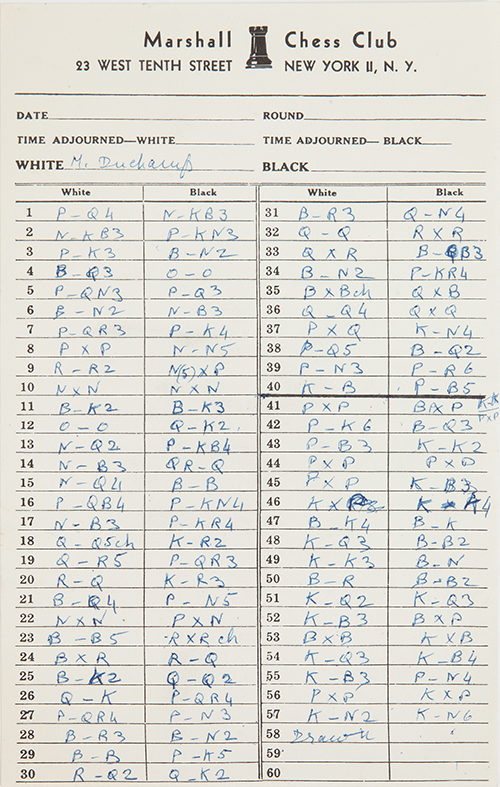 Marshall Chess Club
23 WEST TENTH STREET NEW YORK 11, N. Y.
DATE ROUND
TIME ADJOURNED—WHITE TIME ADJOURNED—BLACK
WHITE M. Duchamp BLACK
White Black White Black
1 P-Q4 N-KB3 31 B-R3 Q-N4
2 N-KB3 P-KN3 32 Q-Q R×R
3 P-K3 B-N2 33 Q×R B-QB3
4 B-Q3 O-O 34 B-N2 P-KR4
5 P-QN3 P-Q3 35 B×Bch Q×B
6 B-N2 N-B3 36 Q-Q4 Q×Q
7 P-QR3 P-K4 37 P×Q K-N4
8 P×P N-N5 38 P-Q5 B-Q2
9 R-R2 N(5)×P 39 P-N3 P-R6
10 N×N N×N 40 K-B P-B5
11 B-K2 B-K3 41 P×P B×P
12 O-O Q-K2 42 P-K6 B-Q3
13 N-Q2 P-KB4 43 P-B3 K-K2
14 N-B3 QR-Q 44 P×P P×P
15 N-Q4 B-B 45 P×P K-B3
16 P-QB4 P-KN4 46 K×P K-K4
17 N-B3 P-KR4 47 B-K4 B-K
18 Q-Q5ch K-R2 48 K-Q3 B-B2
19 Q-R5 P-QR3 49 K-K3 B-N
20 R-Q K-R3 50 B-R B-B2
21 B-Q4 P-N5 51 K-Q2 K-Q3
22 N×N P×N 52 K-B3 B×P
23 B-B5 R×R ch 53 B×B K×B
24 B×R R-Q 54 K-Q3 K-B4
25 B-K2 Q-Q2 55 K-B3 P-N4
26 Q-K P-QR4 56 P×P K×P
27 P-QR4 P-N3 57 K-N2 K-N6
28 B-R3 B-N2 58 Drawn
29 B-B P-K5 59
30 R-Q2 Q-K2 60